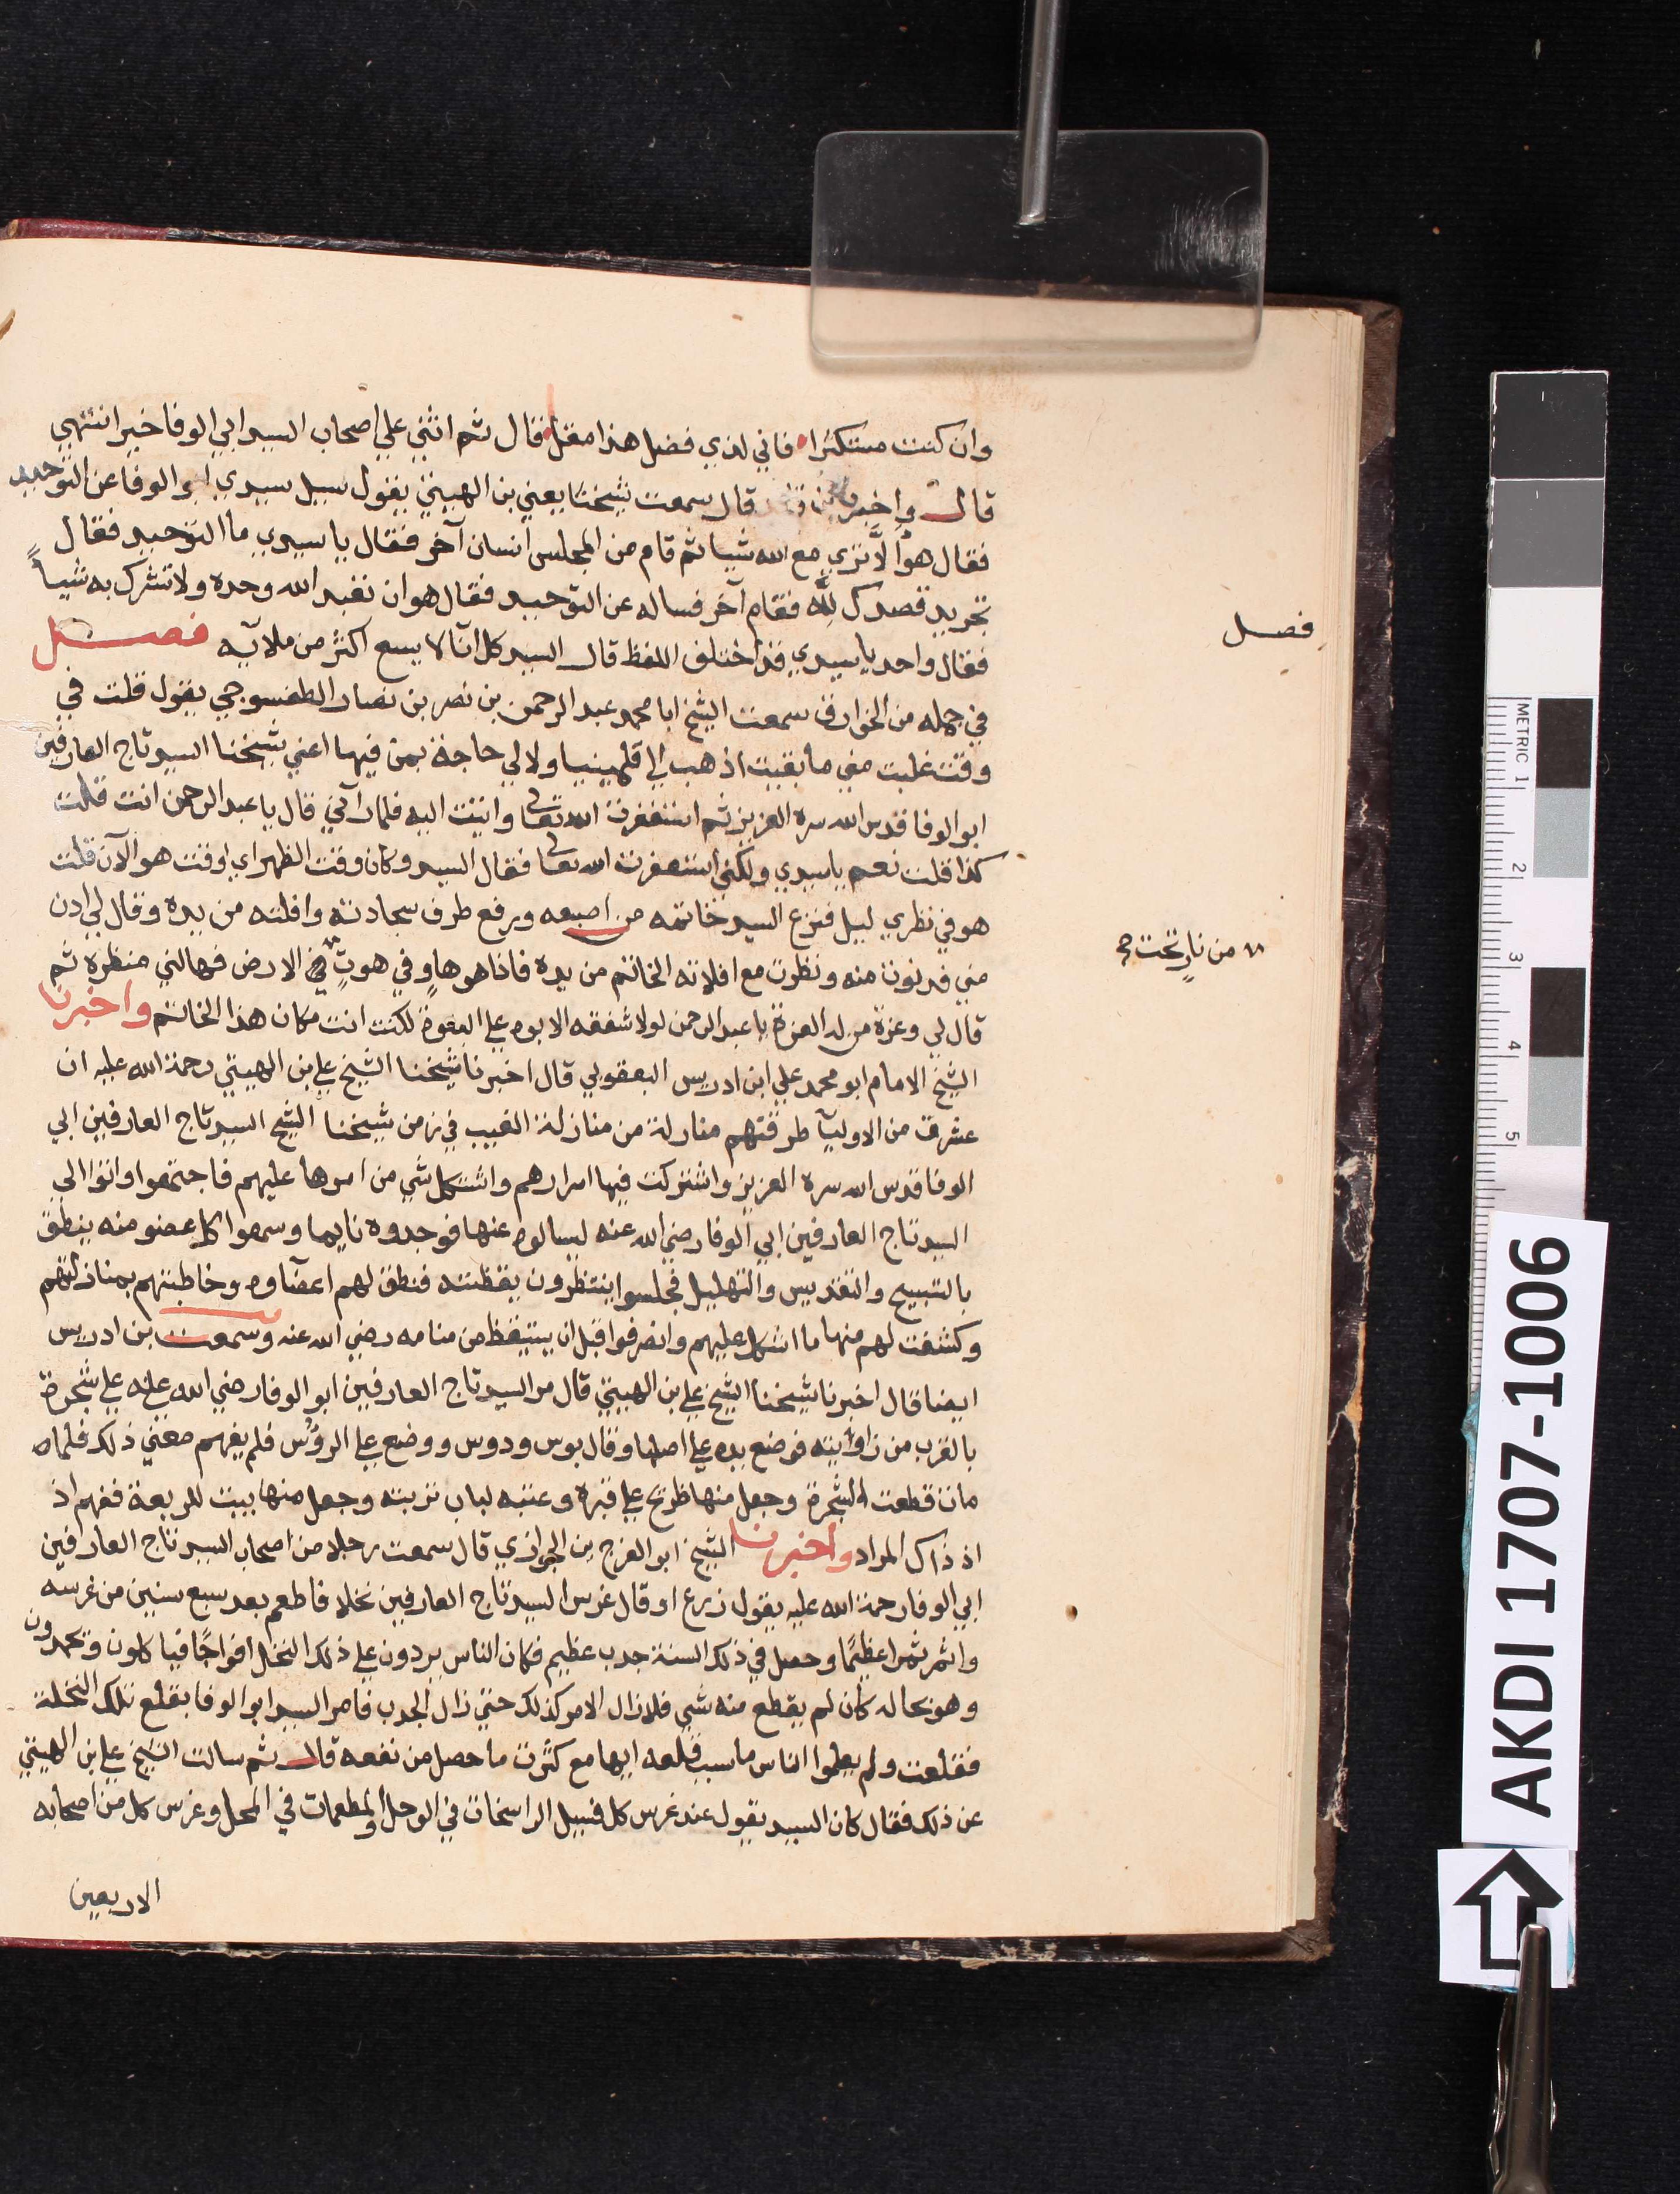 وان كنت مستكثرا فاني لذي فضل هذا مقل فقال ثم انثني علي اصحاب السيد ابي الوفا خير انتهي
قال واخبرنا قال سمعت شيخنا يعني بن الهيتي يقول سيل سيدي ابو الوفا عن التوحيد
فقال هو الّا تري مع الله شيا ثم قام من المجلس انسان آخر فقال يا سيدي ما التوحيد فقال
تجريد قصدك لله فقام آخر فساله عن التوحيد فقال هو ان تعبد الله وحده ولا تشرك به شيأً
فقال واحد يا سيدي قد اختلف اللفظ قال السيد كل انآ لا يسع اكثر من ملايه فصل
في جمله من الخوارق سمعت الشيخ ابا محمد عبد الرحمن بن نصر بن نصار الطفسوجي يقول قلت في
وقت غلبت مني ما بقيت اذهب الي قلمينيا ولا لي حاجة بمن فيها اعني شيخنا السيد تاج العارفين
ابو الوفا قدس الله سره العزيز ثم استغفرت الله تعالى واتيت اليه فلما رآني قال يا عبد الرحمن انت قلت
كذا قلت نعم يا سيدي ولكني استغفرت الله تعالى فقال السيد وكان وقت الظهر اي وقت هو الآن قلت
هو في نظري ليل فنزع السيد خاتمه من اصبعه ورفع طرف سجادته وافلته من يده وقال لي ادن
مني فدنوت منه ونظرت مع افلاته الخاتم من يده فاذا هو هاوٍ في هوتٍ في الارض فهالني منظره ثم
قال لي وعزة من له العزة يا عبد الرحمن لولا شفقه الابوه علي البنوة لكنت انت مكان هذا الخاتم واخبرنا
الشيخ الامام ابو محمد علي ابن ادريس اليعقوبي قال اخبرنا شيخنا الشيخ علي بن الهيتي رحمة الله عليه ان
عشرة من الاوليآ طرقتهم منازلة من منازلة الغيب في زمن شيخنا الشيخ السيد تاج العارفين ابي
الوفا قدس الله سره العزيز واشتركت فيها اسرارهم واشتكل شي من امرها عليهم فاجتمعوا واتوا الى
السيد تاج العارفين ابي الوفا رضي الله عنه ليسالوه عنها فوجدوه نايما وسمعوا كل عضو منه ينطق
بالتسبيح والتقديس والتهليل فجلسوا ينتظرون يقظته فنطق لهم اعضآوه وخاطبتهم بمنازلتهم
وكشفت لهم منها ما اشكل عليهم وانصرفوا قبل ان يستيقظ من منامه رضي الله عنه وسمعت بن ادريس
ايضا قال اخبرنا شيخنا الشيخ علي بن الهيتي قال مر السيد تاج العارفين ابو الوفا رضي الله عنه علي شجرة
بالقرب من زاويته فوضع يده علي اصلها وقال بوس ودوس ووضع علي الرؤس فلم يفهم معني ذلك فلما
مات قطعت الشجرة وجعل منها طرح علي قبره وعتبه لباب تربته وجعل منها بيت للربعة ففهم اذ
اذ ذاك المراد واخبرنا الشيخ ابو الفرج بن الجوازي قال سمعت رجلا من اصحاب السيد تاج العارفين
ابي الوفا رحمة الله عليه يقول زرع او قال غرس السيد تاج العارفين نخلا فاطعم بعد سبع سنين من غرسه
واثمر ثمرا عظيمًا وحصل في ذلك السنة جدب عظيم فكان الناس يردون علي ذلك النخل افواجًا فياكلون ويحمدون
وهو بحاله كان لم يقطع منه شي فلا زال الامر كذلك حتي زال الجدب فامر السيد ابو الوفا بقلع تلك النخلة
فقلعت ولم يعلموا الناس ما سبب قلعه ايها مع كثرت ما حصل من نفعه قال ثم سالت الشيخ علي بن الهيتي
عن ذلك فقال كان السيد يقول عند غرس كل فسيل الراسخات في الوحل والمطعمات في المحل وغرس كل من اصحابه
الاربعين
فصل
من نارٍ تحت
METRIC 1 2 3 4 5
AKDI 1707-1006